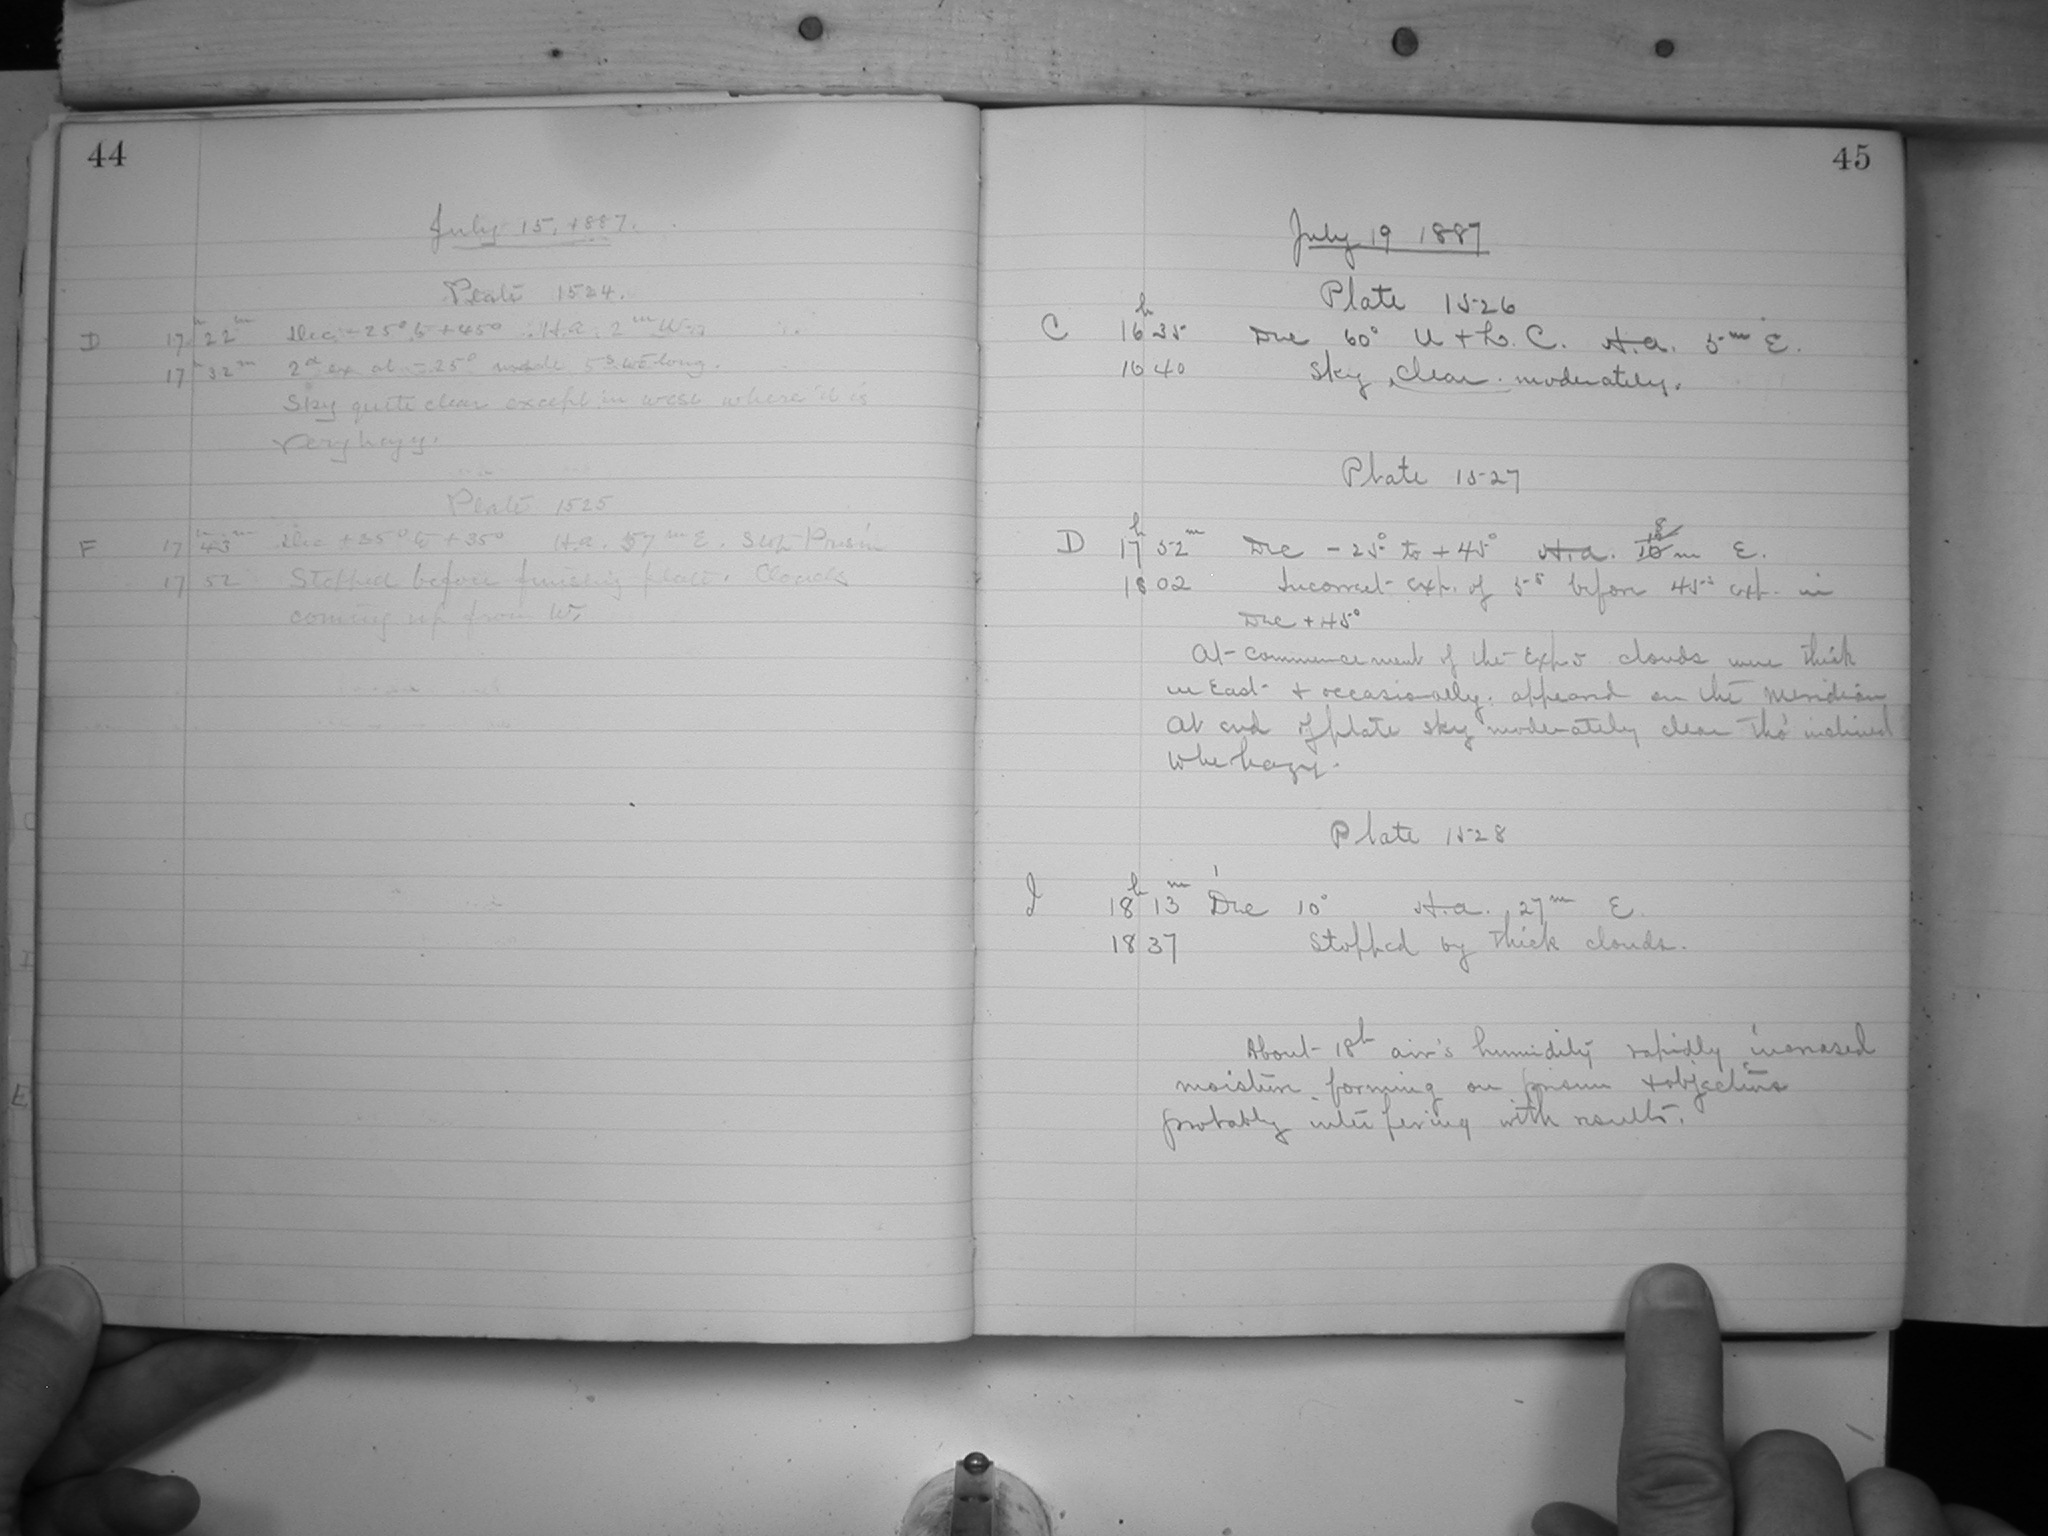 44
July 15, 1887.
Plate 1524.
D 17h 22m Dec. -25° to +45° H.a. 2m W.
17h 32m 2d ex at -25° made 5s too long.
Sky quite clear except in west where it is
very hazy.
Plate 1525
F 17h 43m Dec +25° to +35° H.a. 57m E. Sup. Prism
17 52 Stopped before finishing plate. Clouds
coming up from W.
45
July 19 1887
Plate 1526
C 16h 35 Dec 60° U + L. C. H.a. 5m E.
16 40 Sky clear moderately.
Plate 1527
D 17h 52m Dec -25° to +45° H.a. m E.
18 02 Incorrect exp. of 5s before 45s exp. in
Dec +45°
At commencement of the Exp.s clouds were thick
in East + occasionally appeared on the meridian
At end of plate sky moderately clear tho' inclined
to be hazy.
Plate 1528
J 18h 13m Dec 10° H.a. 27m E.
18 37 Stopped by thick clouds.
About 18h air's humidity rapidly increased
moisture forming on prism + objective
probably interfering with results.